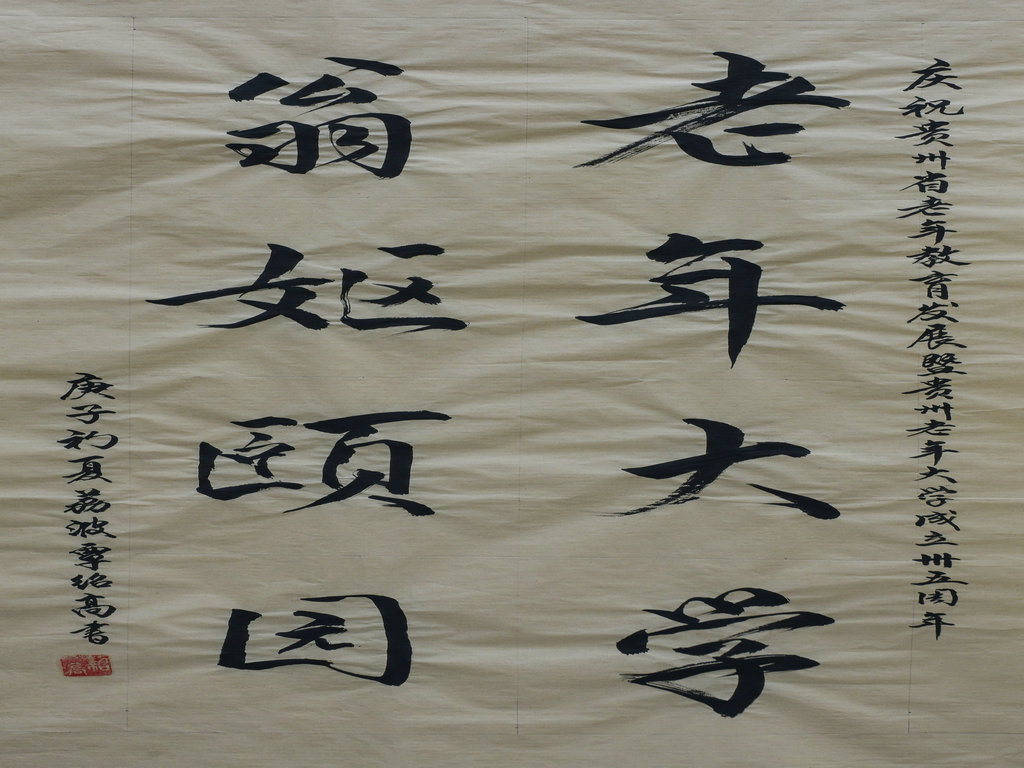 庆祝贵州省老年教育发展暨贵州老年大学成立卅五周年
老年大学
翁妪颐园
庚子初夏荔波覃绍高书